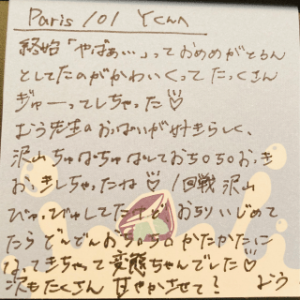 Paris 101 Yくんへ
終始「やばぁ…」っておめめがとろん
としてたのがかわいくってたっくさん
ぎゅーってしちゃった♡
むう先生のおっぱいが好きらしく、
沢山ちゅぱちゅぱしておち○ち○おっき
おっきしちゃったね♡ 1回戦 沢山
びゅーびゅーしてたけど おちりいじめて
たら どんどんおち○ち○かたかたに
なってきちゃって変態ちゃんでした♡
次もたくさん 甘やかさせて?
むう